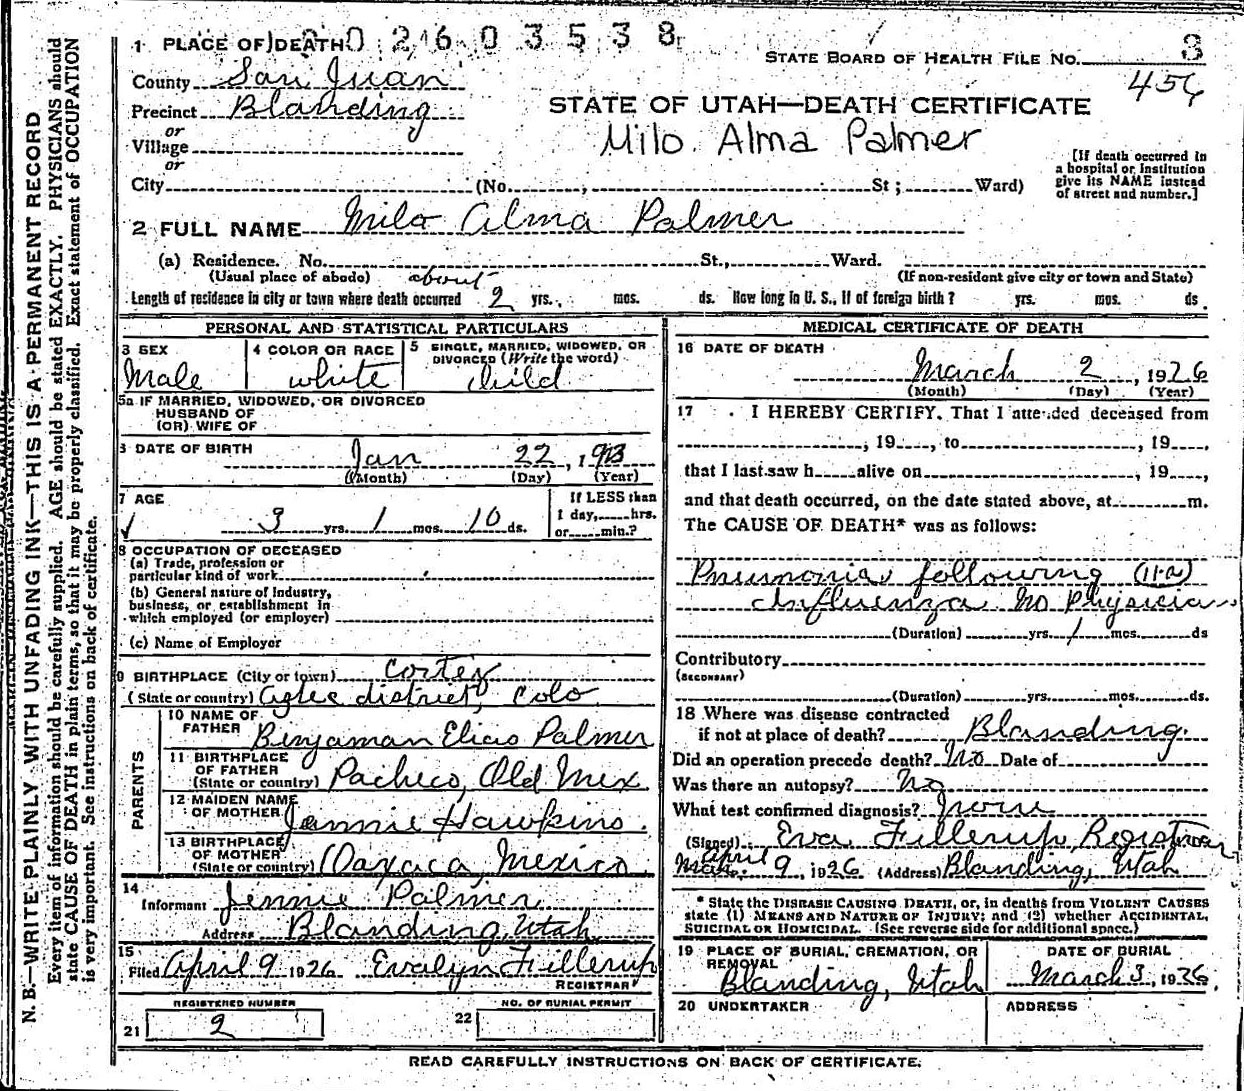 N. B.—WRITE PLAINLY WITH UNFADING INK—THIS IS A PERMANENT RECORD
Every item of information should be carefully supplied. AGE should be stated EXACTLY. PHYSICIANS should
state CAUSE OF DEATH in plain terms, so that it may be properly classified. Exact statement of OCCUPATION
is very important. See instructions on back of certificate.
0 2 6 0 3 5 3 8
1 PLACE OF DEATH
STATE BOARD OF HEALTH FILE NO. 3
456
County San Juan
Precinct Blanding
STATE OF UTAH—DEATH CERTIFICATE
Milo Alma Palmer
or
Village
or
City (No. , St ; Ward)
[If death occurred in
a hospital or institution
give its NAME instead
of street and number.]
2 FULL NAME Milo Alma Palmer
(a) Residence. No. St., Ward.
(Usual place of abode) (If non-resident give city or town and State)
about
Length of residence in city or town where death occurred 2 yrs. mos. ds. How long in U. S., if of foreign birth? yrs. mos. ds.
PERSONAL AND STATISTICAL PARTICULARS
3 SEX Male
4 COLOR OR RACE white
5 SINGLE, MARRIED, WIDOWED, OR
DIVORCED (Write the word)
child
5a IF MARRIED, WIDOWED, OR DIVORCED
HUSBAND OF
(OR) WIFE OF
6 DATE OF BIRTH
Jan 22, 1923
(Month) (Day) (Year)
7 AGE
3 yrs. 1 mos. 10 ds.
If LESS than
1 day, hrs.
or min.?
8 OCCUPATION OF DECEASED
(a) Trade, profession or
particular kind of work
(b) General nature of industry,
business, or establishment in
which employed (or employer)
(c) Name of Employer
9 BIRTHPLACE (City or town) Cortez
(State or country) district, Colo
PARENTS
10 NAME OF
FATHER Benjaman Elias Palmer
11 BIRTHPLACE
OF FATHER
(State or country) Pacheco, Old Mex
12 MAIDEN NAME
OF MOTHER Jennie Hawkins.
13 BIRTHPLACE
OF MOTHER
(State or country) Oaxaca, Mexico
14
Informant Jennie Palmer
Address Blanding, Utah
15
Filed April 9 1926 Evalyn Fillerup
REGISTRAR
REGISTERED NUMBER
21 2
NO. OF BURIAL PERMIT
22
MEDICAL CERTIFICATE OF DEATH
16 DATE OF DEATH
March 2, 1926
(Month) (Day) (Year)
17 I HEREBY CERTIFY, That I attended deceased from
, 19 , to , 19 ,
that I last saw h alive on , 19 ,
and that death occurred, on the date stated above, at m.
The CAUSE OF DEATH* was as follows:
Pneumonia following (11-a)
Influenza No Physician
(Duration) yrs. 1 mos. ds
Contributory
(SECONDARY)
(Duration) yrs. mos. ds.
18 Where was disease contracted
if not at place of death? Blanding.
Did an operation precede death? No Date of
Was there an autopsy? No
What test confirmed diagnosis? None
(Signed) Eva Fillerup, Registrar
April
Mar. 9, 1926 (Address) Blanding, Utah
* State the DISEASE CAUSING DEATH, or, in deaths from VIOLENT CAUSES
state (1) MEANS AND NATURE OF INJURY; and (2) whether ACCIDENTAL,
SUICIDAL OR HOMICIDAL. (See reverse side for additional space.)
19 PLACE OF BURIAL, CREMATION, OR
REMOVAL
Blanding, Utah
DATE OF BURIAL
March 3, 1926
20 UNDERTAKER
ADDRESS
READ CAREFULLY INSTRUCTIONS ON BACK OF CERTIFICATE.